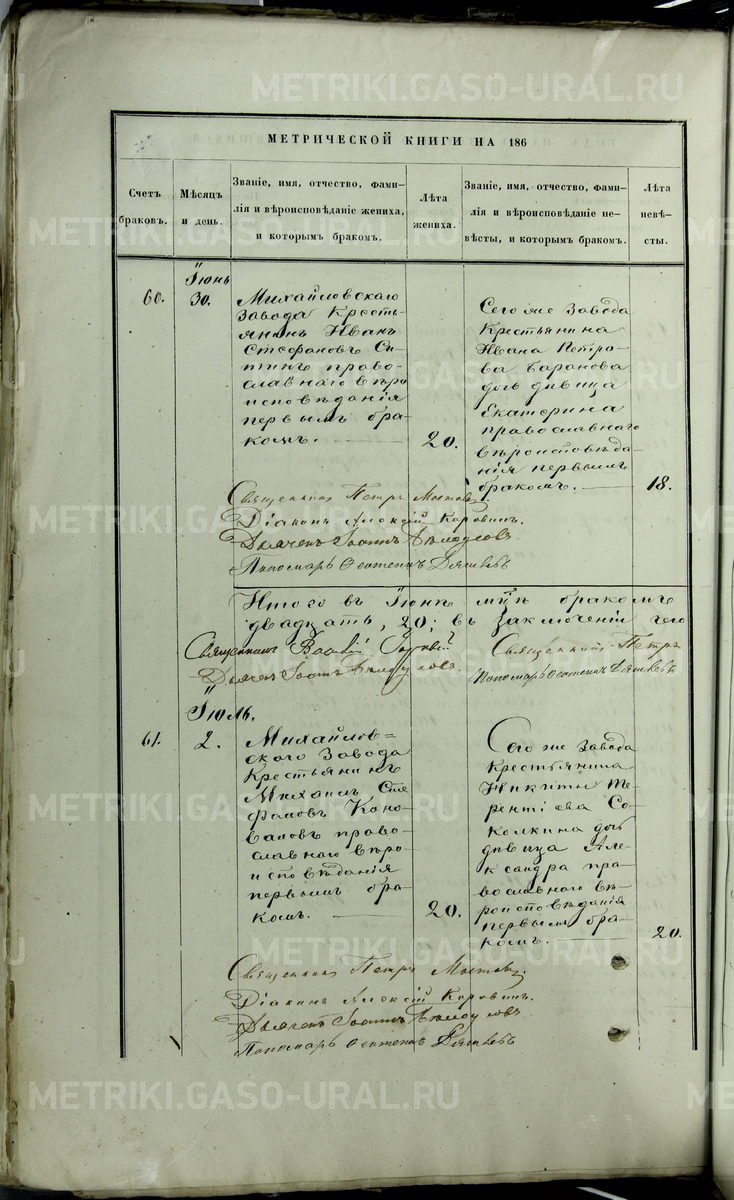 МЕТРИЧЕСКОЙ КНИГИ НА 186
Счетъ
браковъ.
Мѣсяцъ
и день.
Званіе, имя, отчество, фами-
лія и вѣроисповѣданіе жениха,
и которымъ бракомъ.
Лѣта
жениха.
Званіе, имя, отчество, фами-
лія и вѣроисповѣданіе не-
вѣсты, и которымъ бракомъ.
Лѣта
невѣ-
сты.
Іюнь
60.
30.
Михайловскаго
завода Кресть-
янинъ Иванъ
Стефановъ Си-
тинъ право-
славнаго вѣро
исповѣданія
первымъ бра-
комъ.
20.
Сего же завода
Крестьянина
Ивана Петро-
ва Баранова
дочь дѣвица
Екатерина
православнаго
вѣроисповѣда-
нія первымъ
бракомъ.
18.
Священникъ Петръ
Діаконъ Алексѣй Коровинъ.
Дьячекъ Іоаннъ Бѣлоусовъ
Пономарь
Итого въ Іюнѣ м̃цѣ бракомъ
двадцать, 20; въ заключеніи чего
Священникъ
Дьячекъ Іоаннъ Бѣлоусовъ.
Священникъ Петръ
Пономарь
Іюль.
61.
2.
Михайлов=
скаго завода
Крестьянинъ
Михаилъ Сте
фановъ Коно-
валовъ право-
славнаго вѣро
исповѣданія
первымъ бра-
комъ.
20.
Сего же завода
Крестьянина
Никиты Те-
рентіева Со-
колкина дочь
дѣвица Але-
ксандра пра-
вославнаго вѣ-
роисповѣданія
первымъ бра-
комъ.
20.
Священникъ Петръ
Діаконъ Алексѣй Коровинъ.
Дьячекъ Іоаннъ Бѣлоусовъ
Пономарь
METRIKI.GASO-URAL.RU